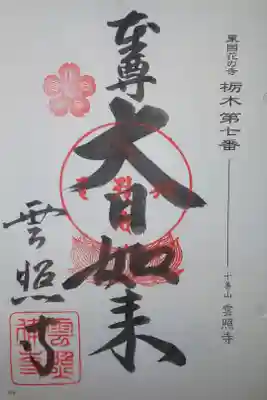 東国花の寺 栃木第七番
十善山 雲照寺
本尊
大日如来
雲照寺